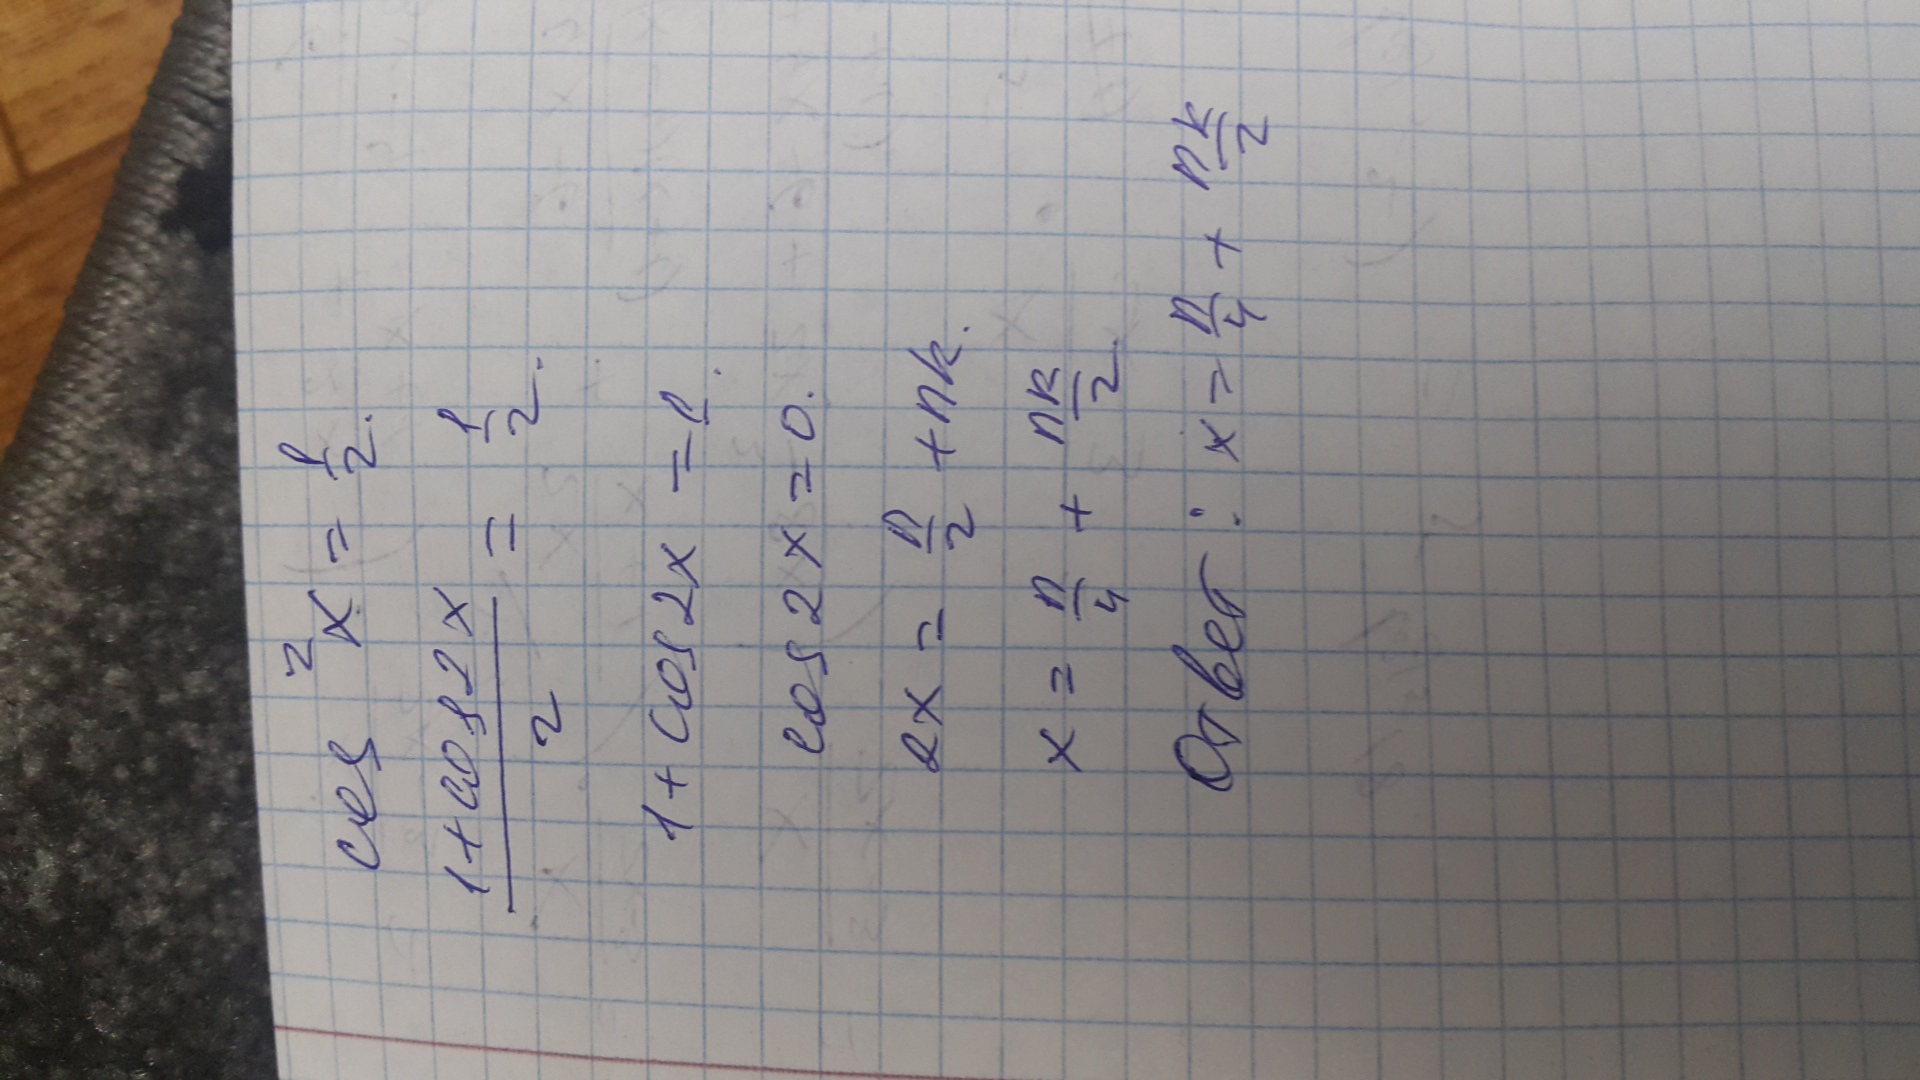 cos²x = 1/2.
(1+cos2x)/2 = 1/2.
1+cos2x = 1.
cos2x = 0.
2x = π/2 + πk.
x = π/4 + πk/2.
Ответ: x = π/4 + πk/2